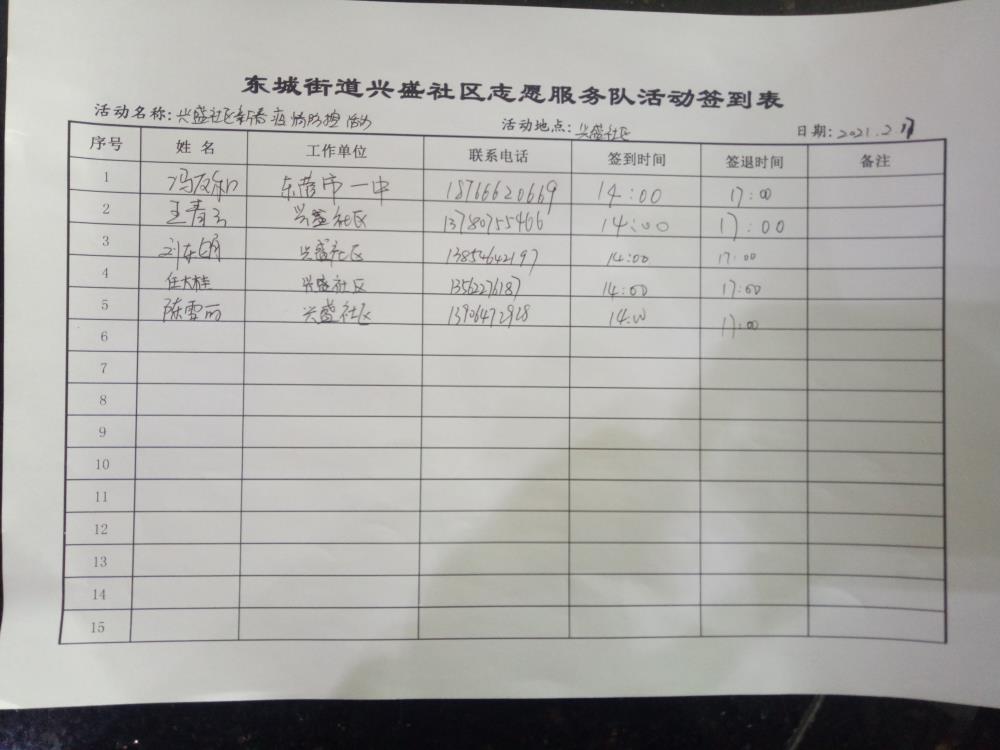 东城街道兴盛社区志愿服务队活动签到表
活动名称：兴盛社区新春疫情防控活动 活动地点：兴盛社区 日期：2021.2.17
序号 姓名 工作单位 联系电话 签到时间 签退时间 备注
1 冯友 东营市一中 18766620669 14:00 17:00
2 王青 兴盛社区 13780755466 14:00 17:00
3 刘东 兴盛社区 13854642197 14:00 17:00
4 任大桂 兴盛社区 13562276187 14:00 17:00
5 陈雪丽 兴盛社区 13906472928 14:00 17:00
6
7
8
9
10
11
12
13
14
15